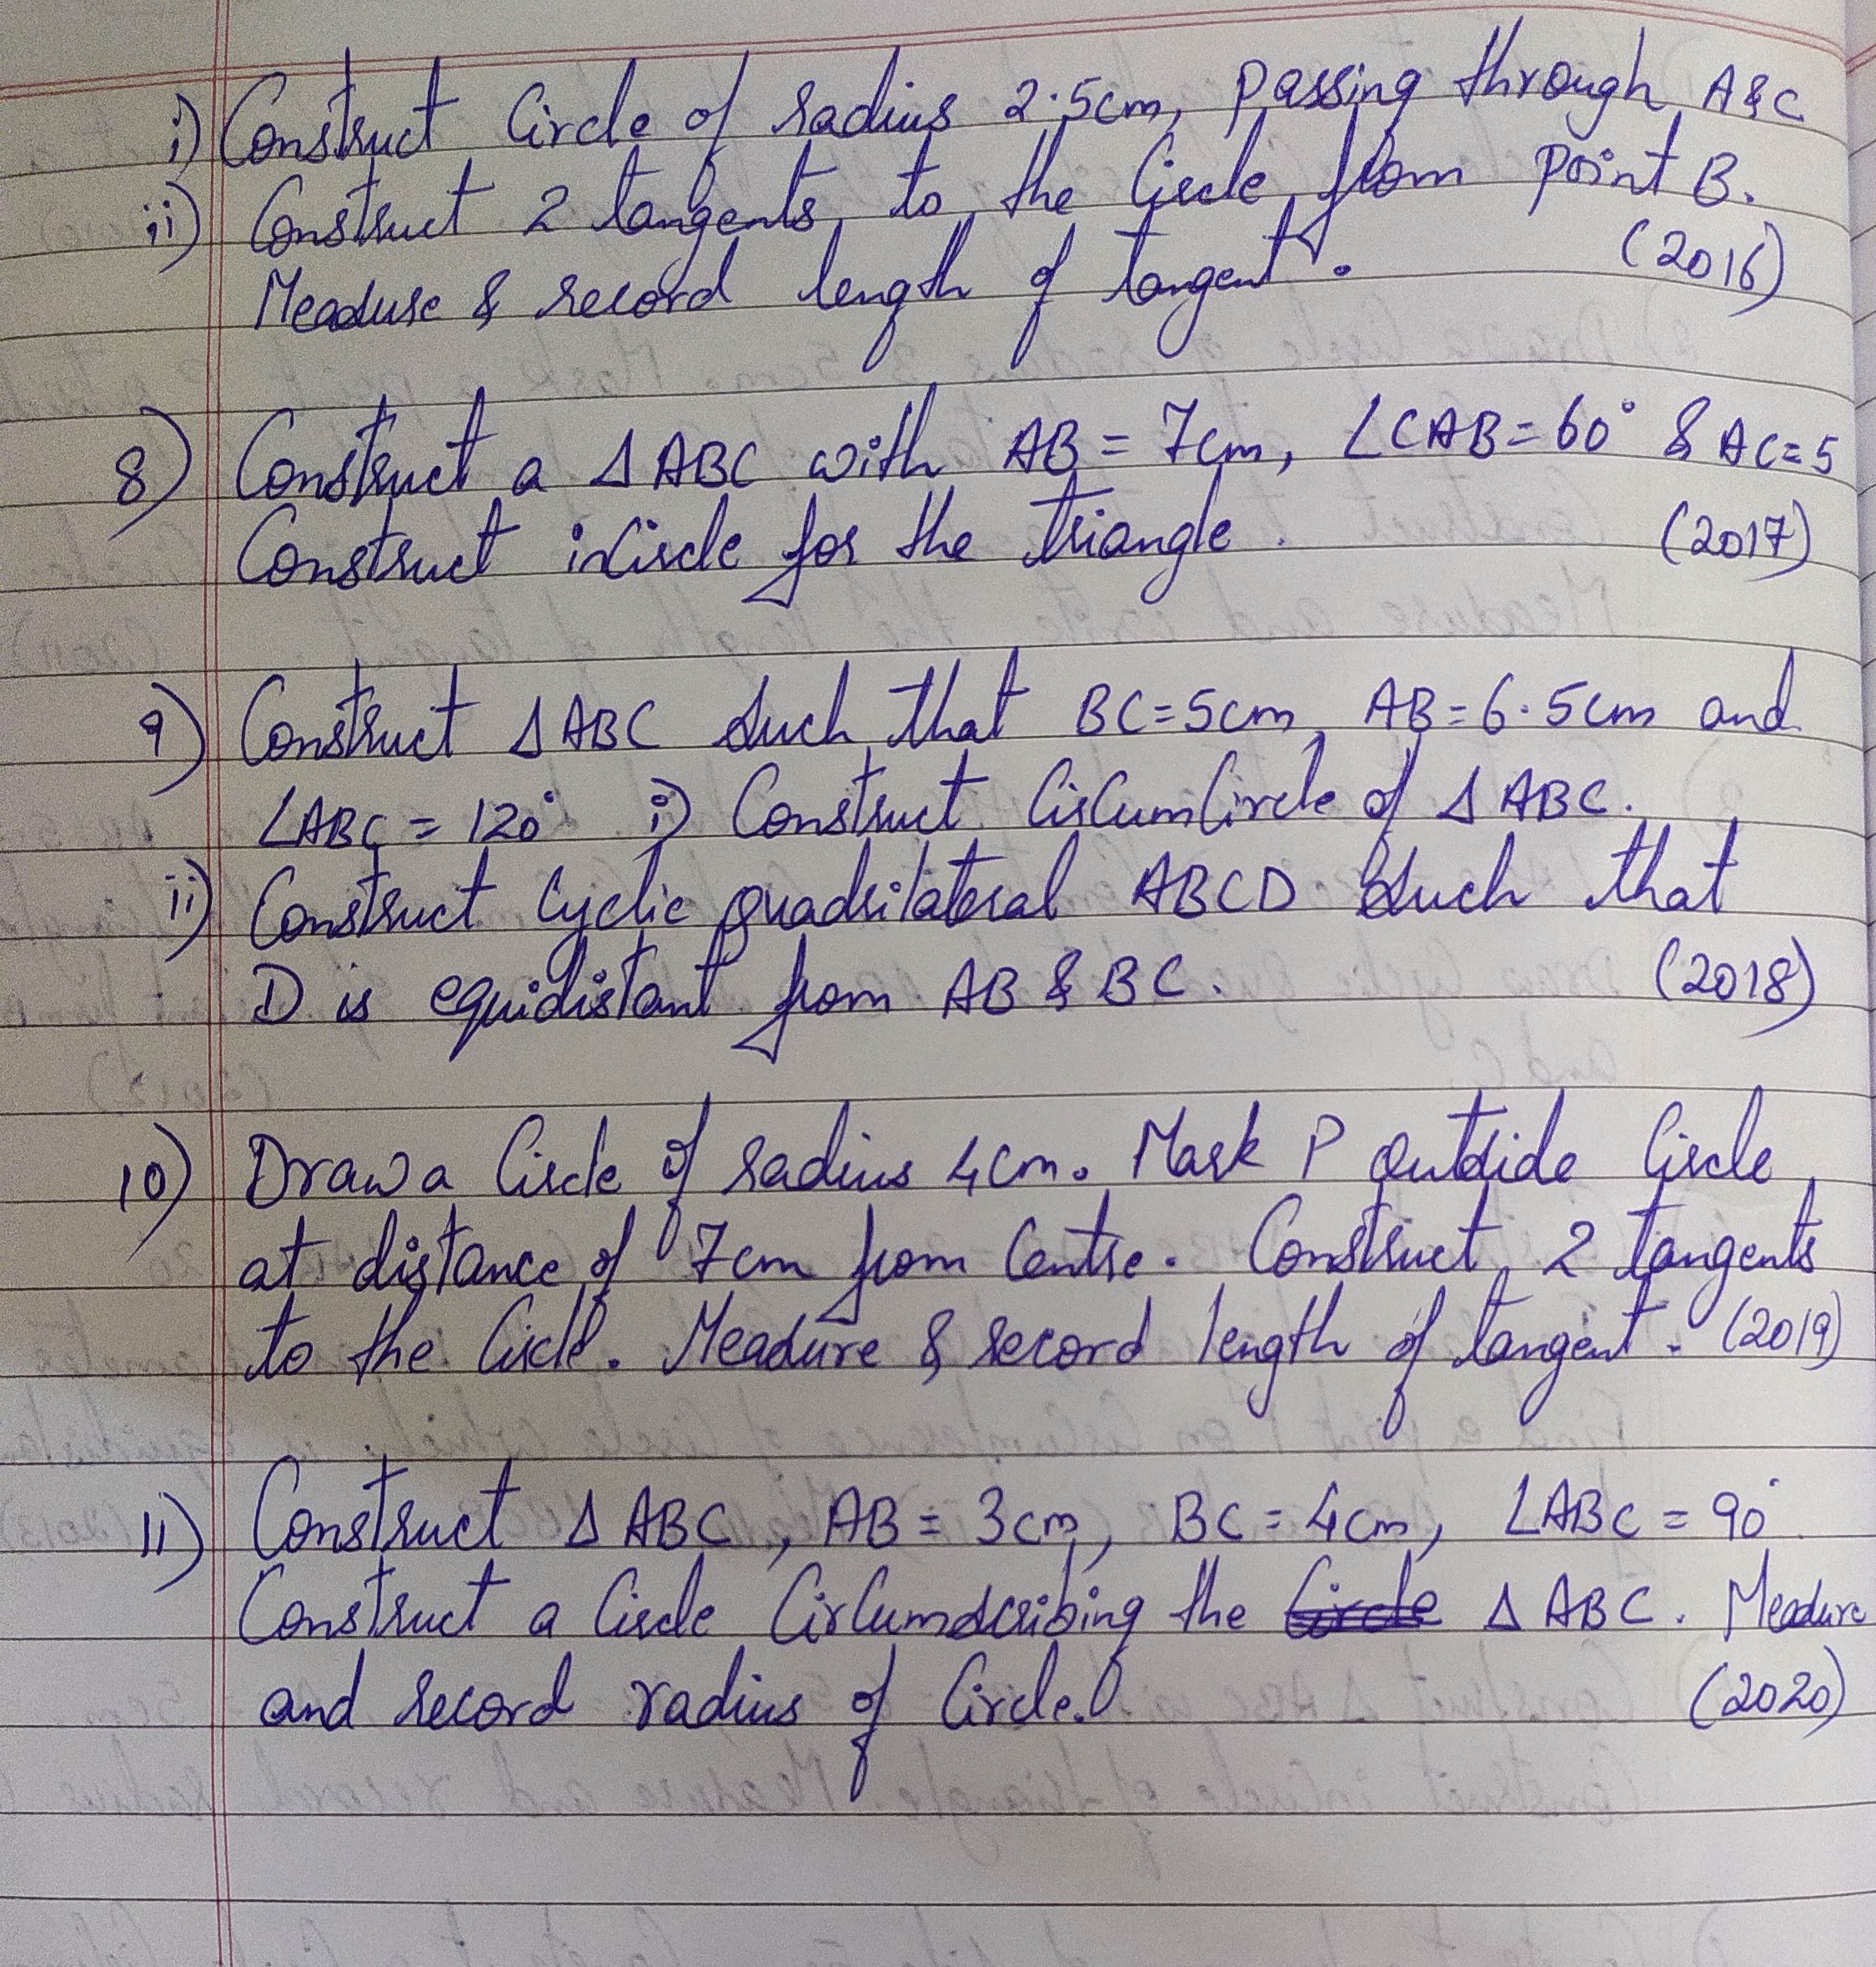 i) Construct Circle of radius 2.5cm, passing through A&C
ii) Construct 2 tangents to the Circle from point B.
Measure & record length of tangent. (2016)
8) Construct a Δ ABC with AB = 7cm, ∠CAB = 60° & AC = 5
Construct inCircle for the triangle. (2017)
9) Construct Δ ABC such that BC = 5cm, AB = 6.5cm and
∠ABC = 120° i) Construct CirCumCircle of Δ ABC.
ii) Construct Cyclic quadrilateral ABCD such that
D is equidistant from AB & BC. (2018)
10) Draw a Circle of radius 4cm. Mark P outside Circle
at distance of 7cm from Centre. Construct 2 tangents
to the Circle. Measure & record length of tangent. (2019)
11) Construct Δ ABC, AB = 3cm, BC = 4cm, ∠ABC = 90°
Construct a Circle CirCumscribing the Circle Δ ABC. Measure
and record radius of Circle. (2020)